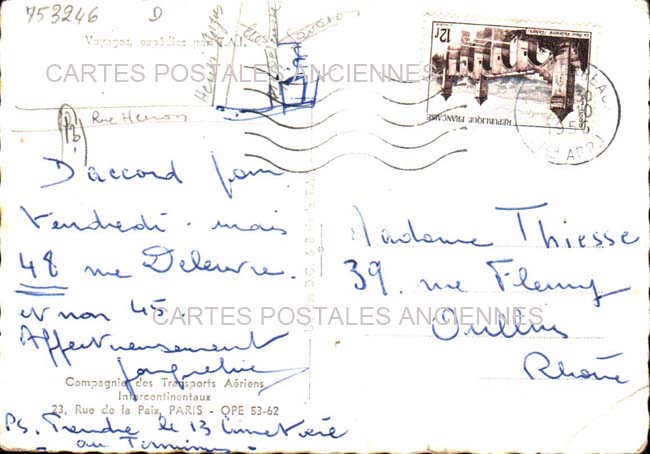 753246 D
Voyagez, expédiez par T.A.I.
CARTES POSTALES ANCIENNES
12F
REPUBLIQUE FRANÇAISE
1955
Rue
D'accord pour
Vendredi. mais
48 rue Deleuvre.
et non 45.
Affectueusement
Jacqueline
Madame Thiesse
39. rue Fleury
Oullins
Rhône
CARTES POSTALES ANCIENNES
Compagnie des Transports Aériens
Intercontinentaux
23, Rue de la Paix, PARIS - OPE 53-62
PS. Prendre le 13 Cimetière
au Terminus